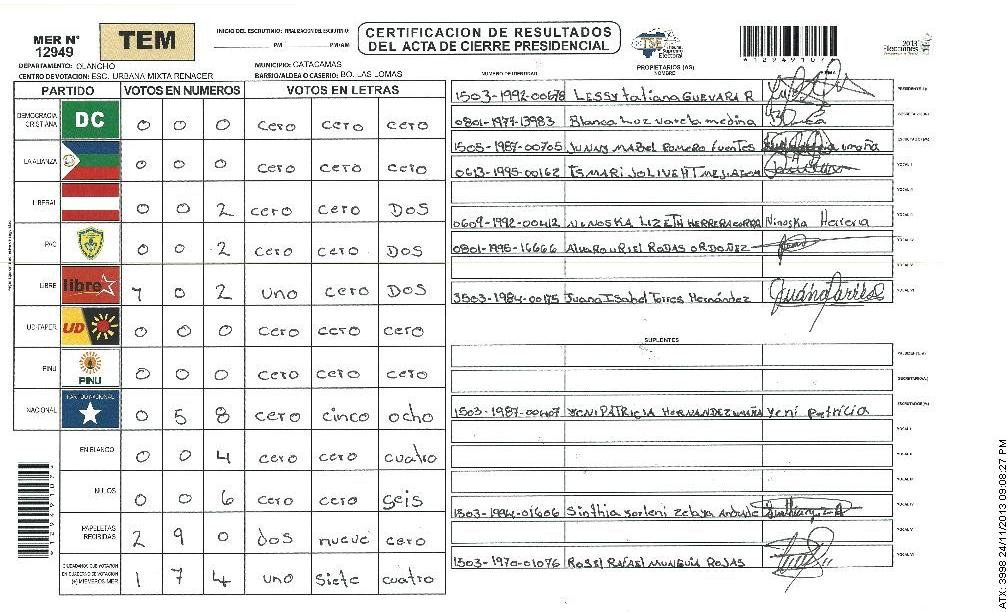 MER N°
12949
TEM
INICIO DEL ESCRUTINIO: FINALIZACION DEL ESCRUTINIO:
PM PM/AM
CERTIFICACION DE RESULTADOS
DEL ACTA DE CIERRE PRESIDENCIAL
TSE Tribunal Supremo Electoral
2013
Elecciones
DEPARTAMENTO: OLANCHO
MUNICIPIO: CATACAMAS
CENTRO DE VOTACION: ESC. URBANA MIXTA RENACER
BARRIO/ALDEA O CASERIO: BO. LAS LOMAS
NUMERO DE IDENTIDAD
PROPIETARIOS (AS)
NOMBRE
PARTIDO VOTOS EN NUMEROS VOTOS EN LETRAS
DEMOCRACIA CRISTIANA DC 0 0 0 cero cero cero
LA ALIANZA 0 0 0 cero cero cero
LIBERAL 0 0 2 cero cero Dos
PAC 0 0 2 cero cero Dos
LIBRE libre 1 0 2 uno cero Dos
UD-FAPER UD 0 0 0 cero cero cero
PINU PINU 0 0 0 cero cero cero
NACIONAL PARTIDO NACIONAL 0 5 8 cero cinco ocho
EN BLANCO 0 0 4 cero cero cuatro
NULOS 0 0 6 cero cero seis
PAPELETAS RECIBIDAS 2 9 0 dos nueve cero
CIUDADANOS QUE VOTARON EN CUADERNO DE VOTACION (+) MIEMBROS MER 1 7 4 uno siete cuatro
1503-1992-00678 LESSY tatiana GUEVARA R
0801-1977-13983 Blanca Luz varela medina
1505-1987-00705 JUNNY MABEL ROMERO Fuentes
0613-1995-00162
0609-1992-00412 NINOSKA LIZETH HERRERA Ninoska Herrera
0801-1995-16666 ALVARO URIEL RODAS ORDOÑEZ
1503-1984-00175 Juana Isabel Torres Hernández
SUPLENTES
1503-1987-00407 YENI PATRICIA HERNANDEZ Yeni patricia
1503-1994-01606 Sinthia yorleni Zelaya
1503-1970-01076 ROSEL RAFAEL MUNGUIA ROJAS
ATX: 3998 24/11/2013 09:08:27 PM